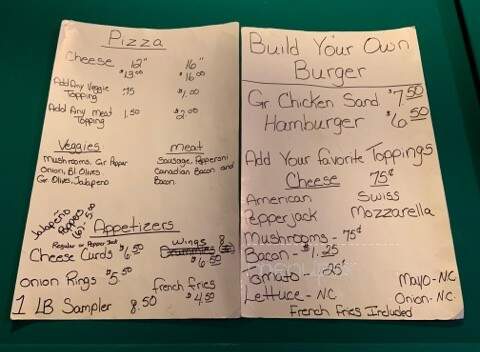 Pizza
Cheese 12" 16"
$13.00 $16.00
Add Any Veggie Topping .75 $1.00
Add Any meat Topping 1.50 $2.00
Veggies: meat
Mushrooms, Gr. Pepper Sausage, Pepperoni
Onion, Bl. Olives Canadian Bacon and
Gr. Olives, Jalapeno Bacon
Jalapeño Poppers (6) - 5.00
Appetizers
Regular or Pepper Jack
Cheese Curds $6.50
Wings 8
$6.50
Onion Rings $5.50
french fries $4.50
1 LB Sampler 8.50
Build Your Own
Burger
Gr Chicken Sand $7.50
Hamburger $6.50
Add Your favorite Toppings
Cheese 75¢
American Swiss
Pepperjack Mozzarella
Mushrooms - 75¢
Bacon - $1.25
Tomato - 25¢ Mayo - NC
Lettuce - NC Onion - NC
French Fries Included